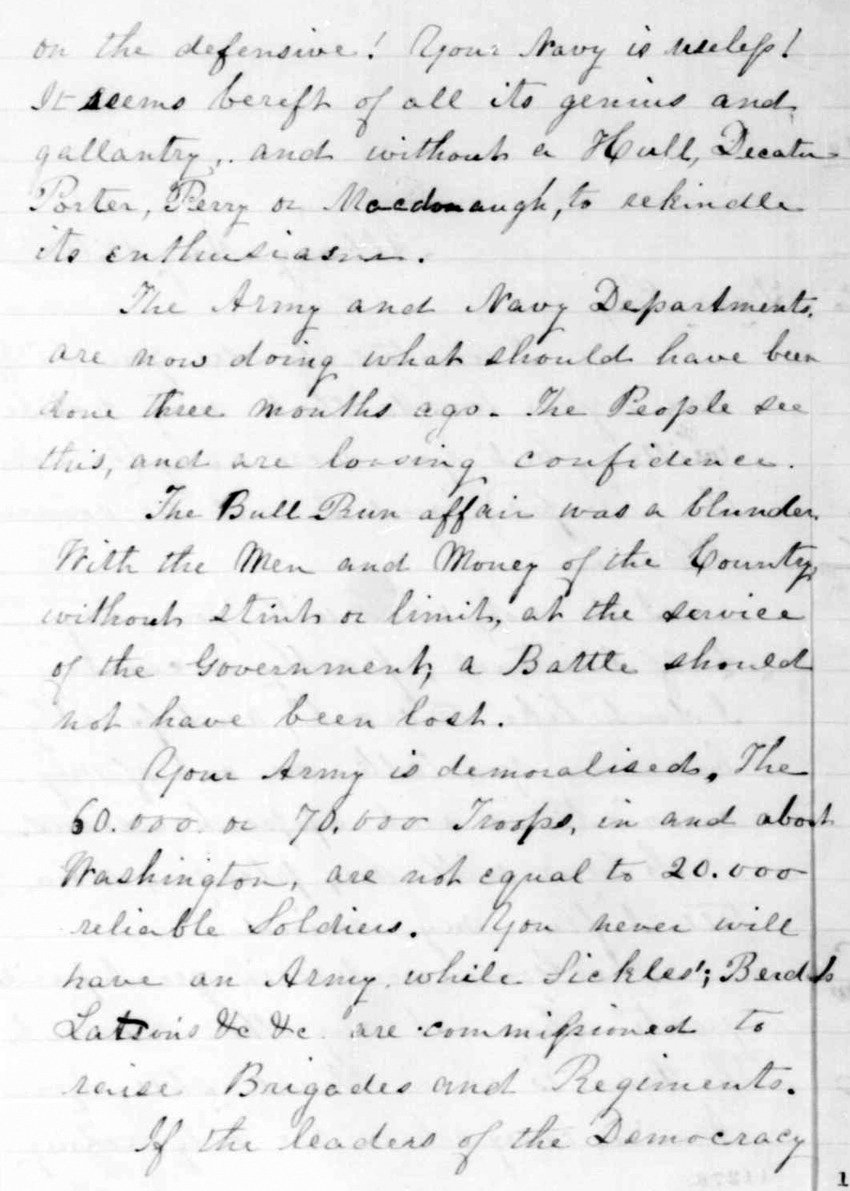 on the defensive! Your Navy is useless!
It seems bereft of all its genius and
gallantry, and without a Hull, Decatur
Porter, Perry or Macdonaugh, to rekindle
its enthusiasm.
The Army and Navy Departments,
are now doing what should have been
done three months ago. The People see
this, and are loosing confidence.
The Bull Run affair was a blunder.
With the Men and Money of the County,
without stint or limit, at the service
of the Government, a Battle should
not have been lost.
Your Army is demoralised. The
60.000 or 70.000 Troops, in and about
Washington, are not equal to 20.000
reliable Soldiers. You never will
have an Army while Sickles'; Berd
&c &c are commissioned to
raise Brigades and Regiments.
If the leaders of the Democracy
1